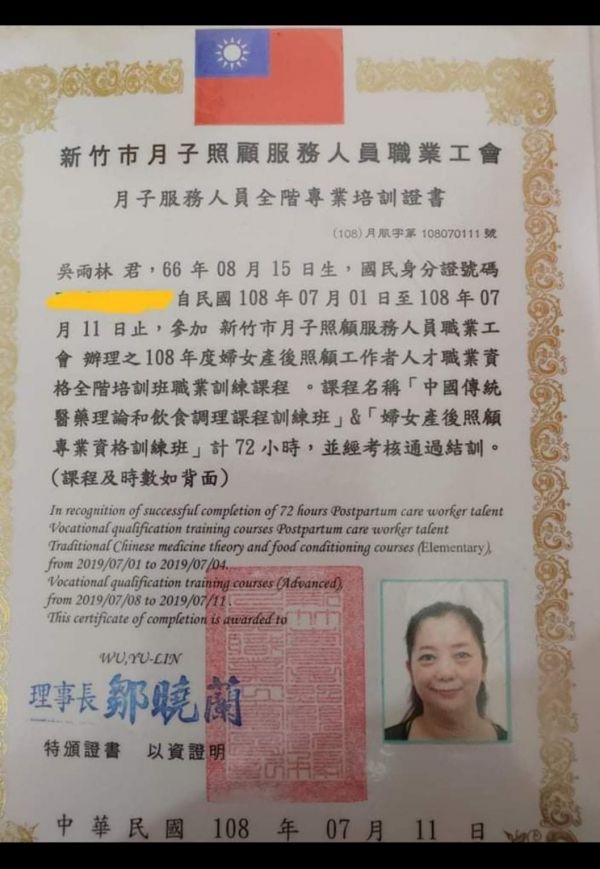 新竹市月子照顧服務人員職業工會
月子服務人員全階專業培訓證書
(108)月服字第 108070111 號
吳雨林 君，66 年 08 月 15 日生，國民身分證號碼
自民國 108 年 07 月 01 日至 108 年 07
月 11 日止，參加 新竹市月子照顧服務人員職業工
會 辦理之 108 年度婦女產後照顧工作者人才職業資
格全階培訓班職業訓練課程 。課程名稱「中國傳統
醫藥理論和飲食調理課程訓練班」&「婦女產後照顧
專業資格訓練班」計 72 小時，並經考核通過結訓。
(課程及時數如背面)
In recognition of successful completion of 72 hours Postpartum care worker talent
Vocational qualification training courses Postpartum care worker talent
Traditional Chinese medicine theory and food conditioning courses (Elementary),
from 2019/07/01 to 2019/07/04.
Vocational qualification training courses (Advanced),
from 2019/07/08 to 2019/07/11 .
This certificate of completion is awarded to
WU,YU-LIN
理事長 鄒曉蘭
特頒證書 以資證明
中 華 民 國 108 年 07 月 11 日